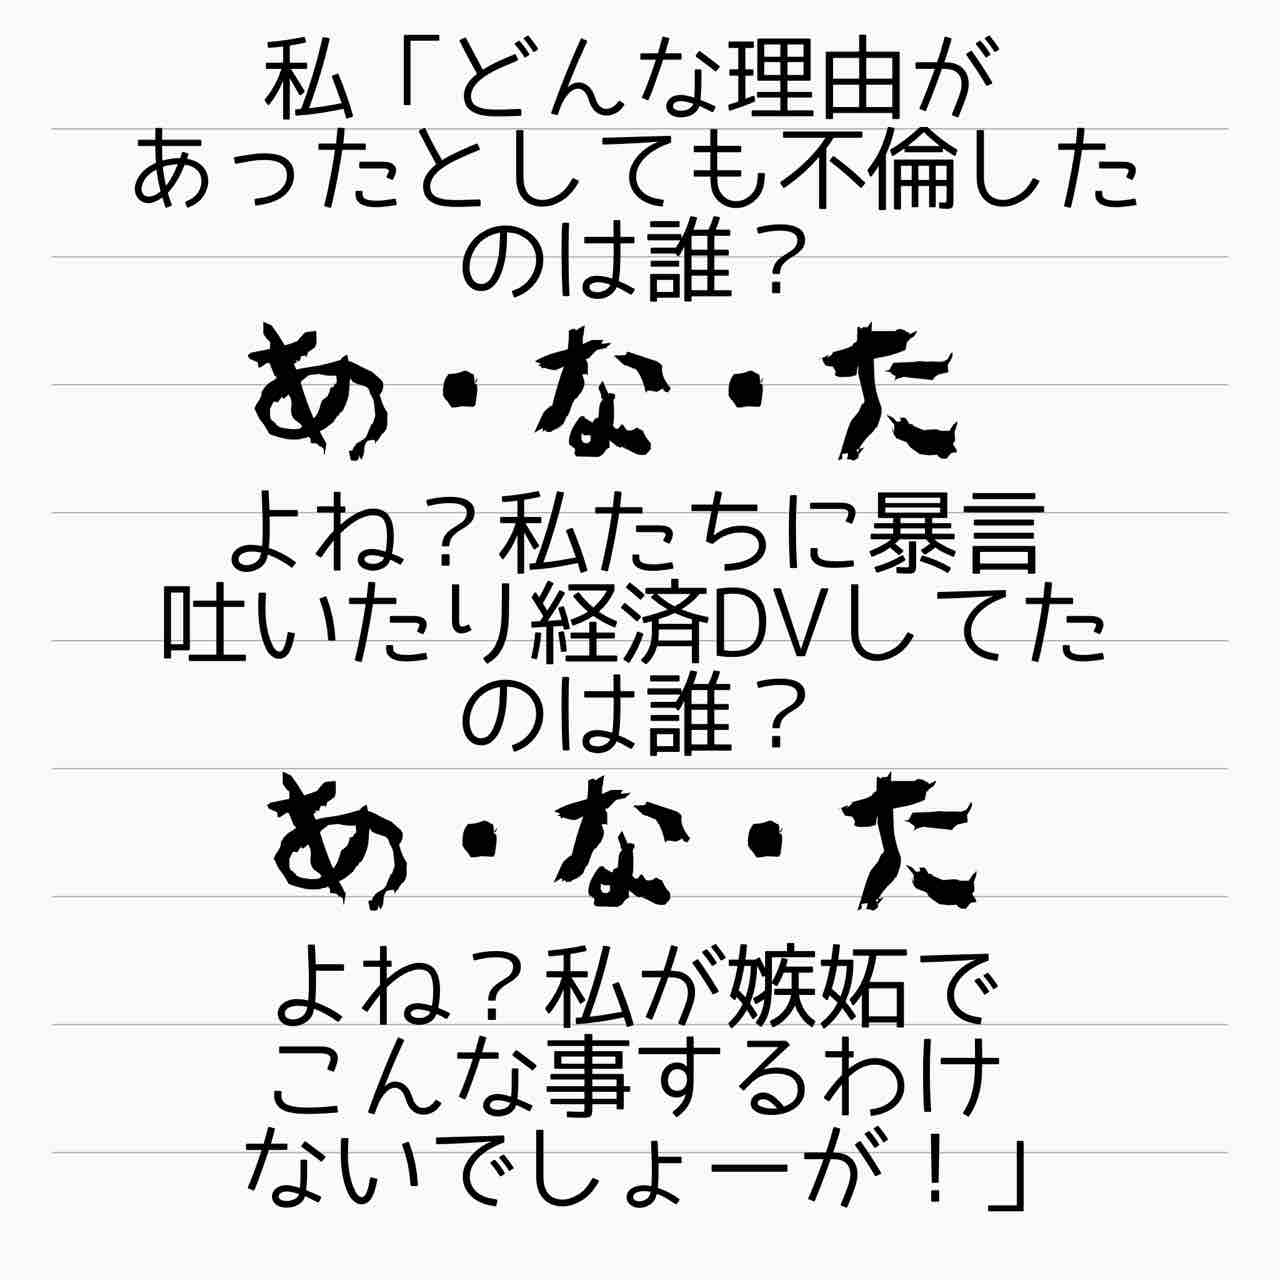 私「どんな理由が
あったとしても不倫した
のは誰？
あ・な・た
よね？私たちに暴言
吐いたり経済DVしてた
のは誰？
あ・な・た
よね？私が嫉妬で
こんな事するわけ
ないでしょーが！」